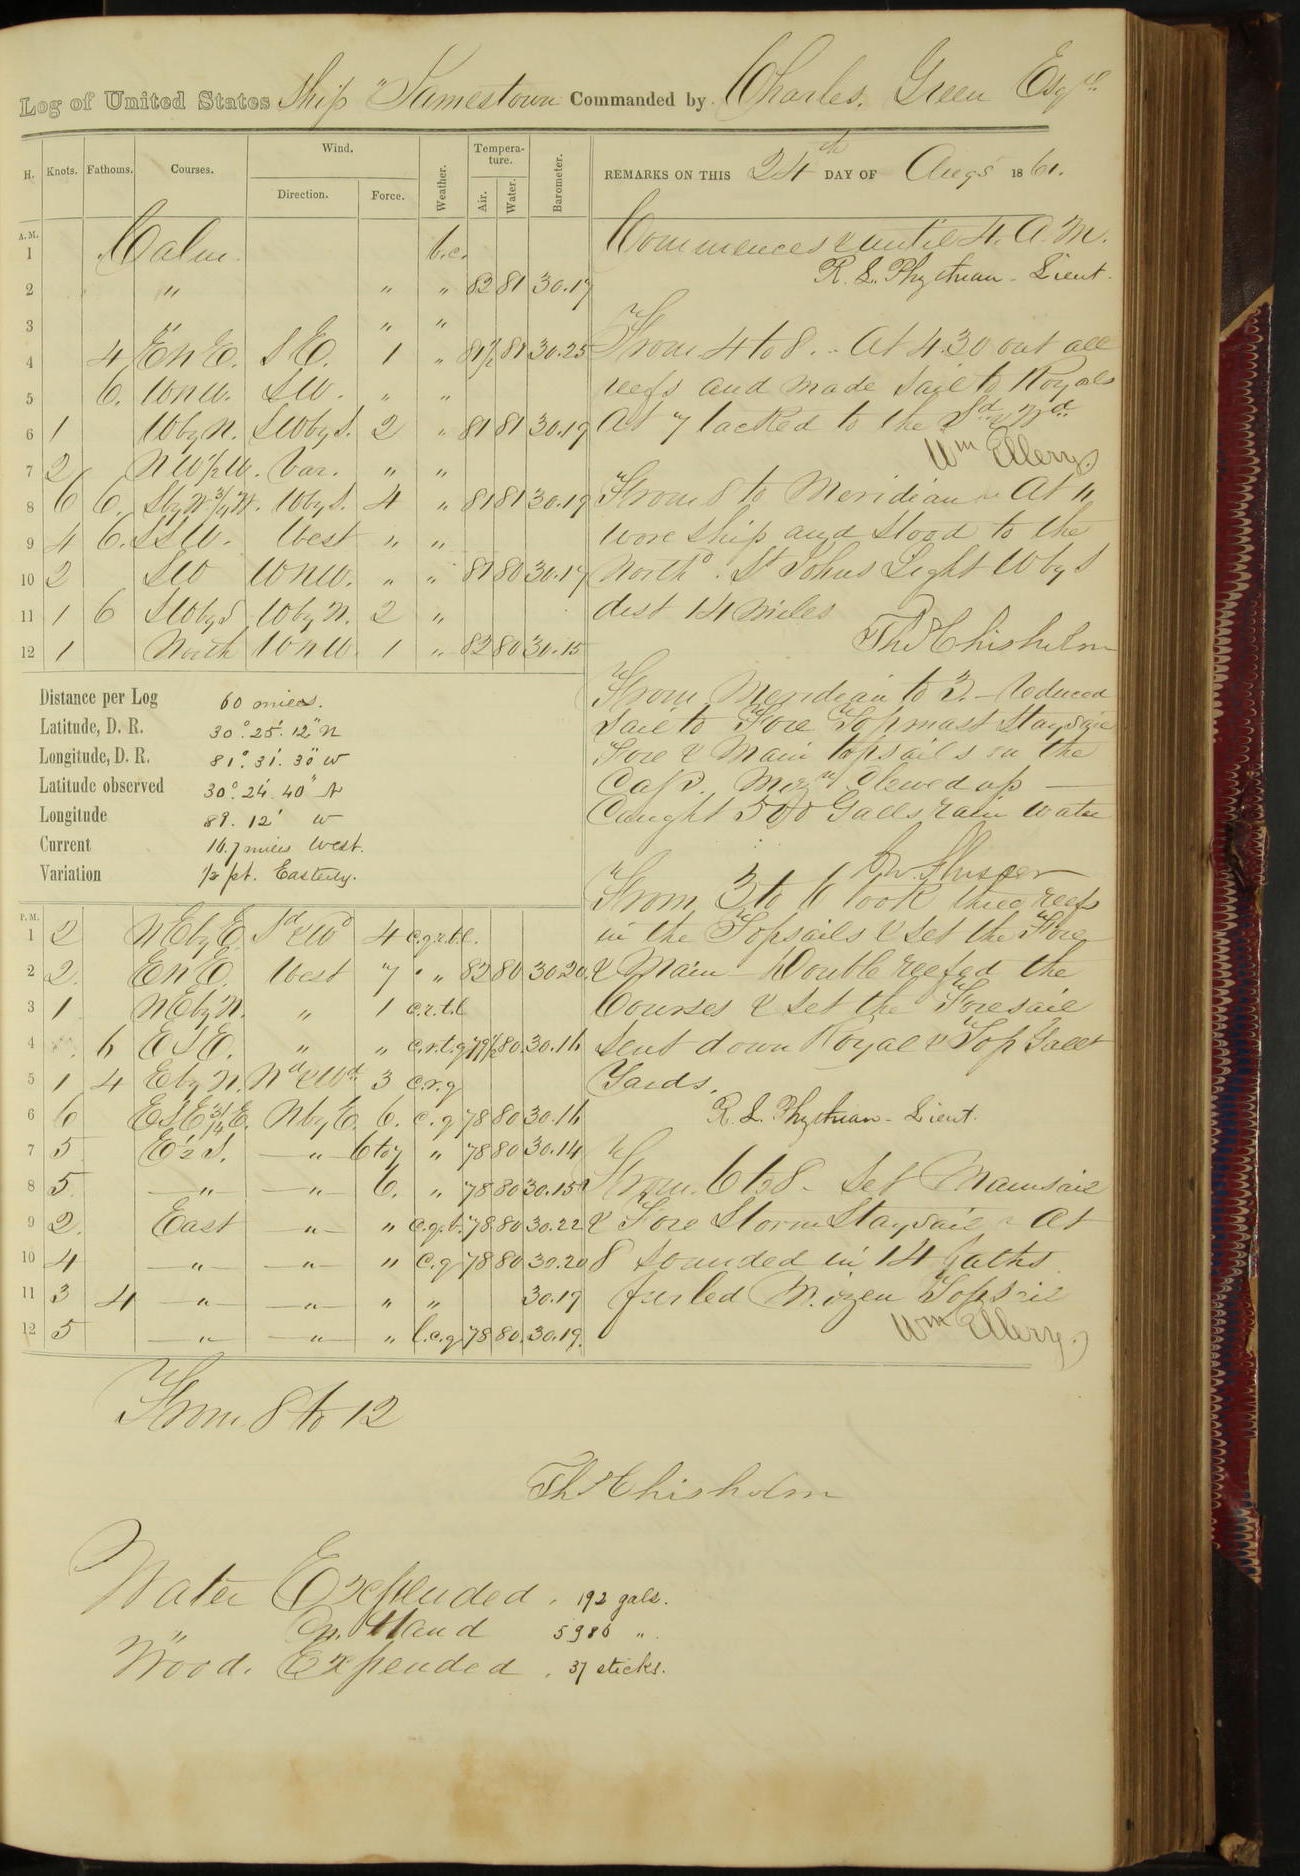 Log of United States Ship "Jamestown Commanded by Charles. Green Esqre
H. Knots. Fathoms. Courses. Wind. Direction. Force. Weather. Tempera-ture. Air. Water. Barometer. REMARKS ON THIS 24th DAY OF Augs 1861.
A.M.
1 Calm b.c.
2 " " " 82 81 30.17
3 " " "
4 4 E N E. S E. 1 " 81½ 81 30.25
5 6. W N W. S W. " "
6 1 W by N. S W by S. 2 " 81 81 30.19
7 2 N W ½ W. Var. " "
8 6 6. S by W ¾ W. W by S. 4 " 81 81 30.19
9 4 6. S S W. West " "
10 2 S W W N W. " " 81 80 30.17
11 1 6 S W by S W by N. 2 "
12 1 North W N W. 1 " 82 80 30.15
Commences & until 4. A. M.
R. L. Phythian - Lieut.
From 4 to 8. - At 4.30 out all
reefs and made sail to Royals
At 7 tacked to the Sd & Wd
Wm Ellery
From 8 to Meridian At 11
wore ship and stood to the
North d. St Johns Light W by S
dist 14 miles
Th Chisholm
Distance per Log 60 miles.
Latitude, D. R. 30°. 25'. 12" N
Longitude, D. R. 81°. 31'. 30" W
Latitude observed 30°. 24'. 40" N
Longitude 81. 12' W
Current 16.7 miles West.
Variation ½ pt. Easterly.
From Meridian to 3. - Reduced
sail to Fore Topmast Staysail
Fore & Main topsails on the
Cap. Mizn clewed up -
Caught 500 Galls rain water
From 3 to 6 took three reefs
in the Topsails & set the Fore
& Main Double reefed the
Courses & set the Foresail
Sent down Royal & Top Gallt
Yards.
R. L. Phythian - Lieut.
From 6 to 8 - Set Mainsail
& Fore Storm Staysail At
8 sounded in 14 faths
furled Mizen Topsail
Wm Ellery.
P.M.
1 2 N E by E. Sd & Wd 4 c.q.r.t.l.
2 2. E N E. West 7 " " 82 80 30.20
3 1 N E by N. " 1 c.r.t.l
4 6 E S E. " " c.r.t.q 79½ 80 30.16
5 1 4 E by N. Nd & Wd. 3 c.r.q
6 6 E S E ¾ E. N by E. 6. c.q 78 80 30.16
7 5 E ½ S. " 6 to 7 " 78 80 30.14
8 5 " " 6. " 78 80 30.15
9 2. East " " c.q.t. 78 80 30.22
10 4 " " " c.q 78 80 30.20
11 3 4 " " " " 30.19
12 5 " " " l.c.q 78 80. 30.19.
From 8 to 12
Th Chisholm
Water Expended. 192 gals.
" On Hand 5986 ".
Wood. Expended. 37 sticks.